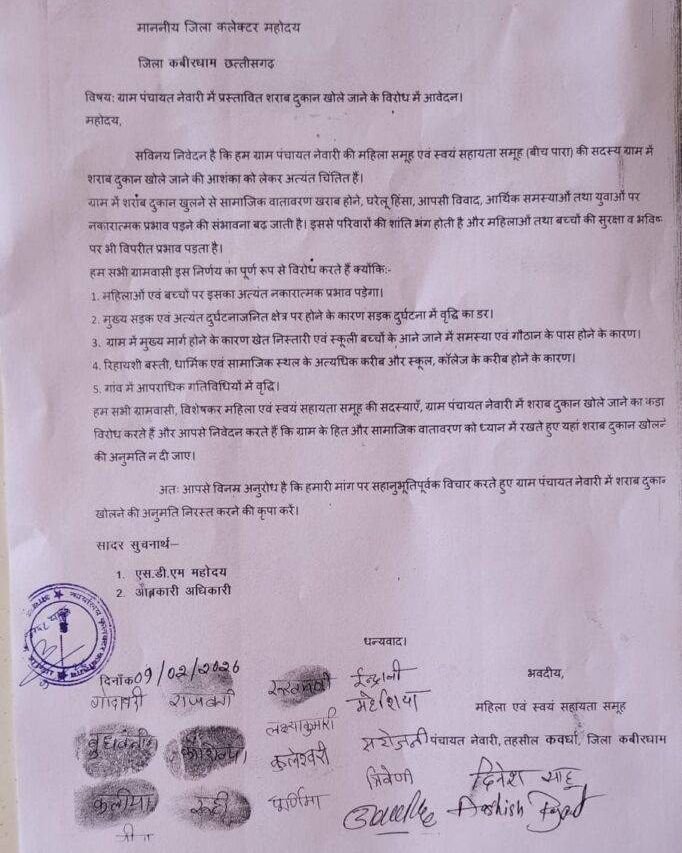 माननीय जिला कलेक्टर महोदय
जिला कबीरधाम छत्तीसगढ़
विषय: ग्राम पंचायत नेवारी में प्रस्तावित शराब दुकान खोले जाने के विरोध में आवेदन।
महोदय,
सविनय निवेदन है कि हम ग्राम पंचायत नेवारी की महिला समूह एवं स्वयं सहायता समूह (बीच पारा) की सदस्य ग्राम में
शराब दुकान खोले जाने की आशंका को लेकर अत्यंत चिंतित हैं।
ग्राम में शराब दुकान खुलने से सामाजिक वातावरण खराब होने, घरेलू हिंसा, आपसी विवाद, आर्थिक समस्याओं तथा युवाओं पर
नकारात्मक प्रभाव पड़ने की संभावना बढ़ जाती है। इससे परिवारों की शांति भंग होती है और महिलाओं तथा बच्चों की सुरक्षा व भविष्य
पर भी विपरीत प्रभाव पड़ता है।
हम सभी ग्रामवासी इस निर्णय का पूर्ण रूप से विरोध करते हैं क्योंकि:-
1. महिलाओं एवं बच्चों पर इसका अत्यंत नकारात्मक प्रभाव पड़ेगा।
2. मुख्य सड़क एवं अत्यंत दुर्घटनाजनित क्षेत्र पर होने के कारण सड़क दुर्घटना में वृद्धि का डर।
3. ग्राम में मुख्य मार्ग होने के कारण खेत निस्तारी एवं स्कूली बच्चों के आने जाने में समस्या एवं गौठान के पास होने के कारण।
4. रिहायशी बस्ती, धार्मिक एवं सामाजिक स्थल के अत्यधिक करीब और स्कूल, कॉलेज के करीब होने के कारण।
5. गांव में आपराधिक गतिविधियों में वृद्धि।
हम सभी ग्रामवासी, विशेषकर महिला एवं स्वयं सहायता समूह की सदस्याएँ, ग्राम पंचायत नेवारी में शराब दुकान खोले जाने का कड़ा
विरोध करते हैं और आपसे निवेदन करते हैं कि ग्राम के हित और सामाजिक वातावरण को ध्यान में रखते हुए यहां शराब दुकान खोलने
की अनुमति न दी जाए।
अतः आपसे विनम्र अनुरोध है कि हमारी मांग पर सहानुभूतिपूर्वक विचार करते हुए ग्राम पंचायत नेवारी में शराब दुकान
खोलने की अनुमति निरस्त करने की कृपा करें।
सादर सुचनार्थ–
1. एस.डी.एम महोदय
2. आबकारी अधिकारी
धन्यवाद।
दिनाँक 09/02/2026
भवदीय,
महिला एवं स्वयं सहायता समूह
पंचायत नेवारी, तहसील कवर्धा, जिला कबीरधाम
गोदावरी
ईन्द्रानी
महेशिया
लक्ष्याकुमारी
सरोजनी
कुलेश्वरी
त्रिवेणी
दिनेश साहू
पूर्णिमा
Aashish